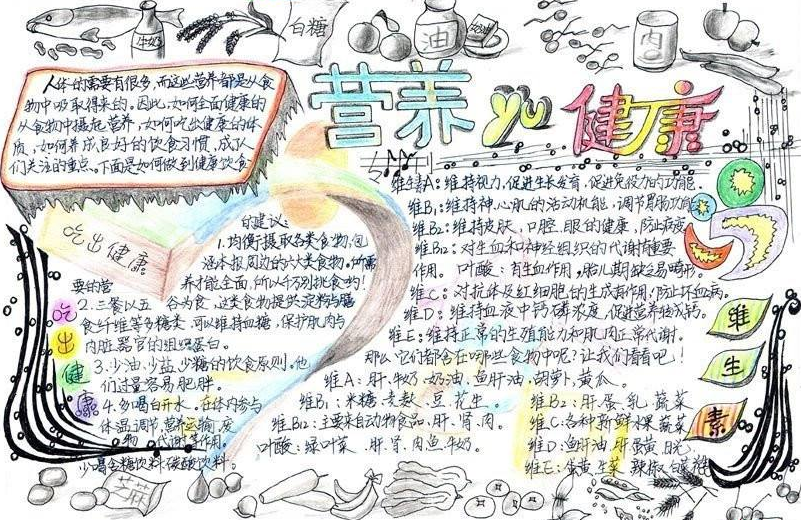 牛奶
白糖
油
肉
人体的需要有很多,而这些营养都是从食
物中吸取得来的。因此,如何全面健康的
从食物中摄起营养,如何吃出健康的体
质,如何养成良好的饮食习惯,成人
们关注的重点。下面是如何做到健康饮食
的建议:
营养 yu 健康
吃出健康
1.均衡摄取各类食物,包
涵本报周边的六大类食物。所需
要的营
养才能全面,所以千万别挑食物!
2.三餐以五谷为食,这类食物提供淀粉与膳
食纤维等多糖类,可以维持血糖,保护肌肉与
内脏器官的组织蛋白。
3.少油,少盐,少糖的饮食原则。他
们过量容易肥胖。
4.多喝白开水,在体内参与
体温调节,营养运输,废
物代谢等作用。
少喝含糖饮料碳酸饮料。
吃出健康
维生素A:维持视力,促进生长发育,促进免疫力的功能。
维B₁:维持神、心肌的活动机能,调节胃肠功能
维B₂:维持皮肤、口腔、眼的健康,防止病变
维B₁₂:对生血和神经组织的代谢有重要
作用。叶酸:有生血作用,胎儿期缺会畸形。
维C:对抗体及红细胞的生成有作用,防止坏血病。
维D:维持血液中钙磷浓度,促进营养的成钙。
维E:维持正常的生殖能力和肌肉正常代谢。
那么它们都含在哪些食物中呢?让我们看看吧!
维A:肝、牛奶、奶油、鱼肝油、胡萝卜、黄瓜。
维B₁:米糠、麦麸、豆、花生。
维B₂:肝、蛋、乳、蔬菜
维B₁₂:主要来自动物食品、肝、肾、肉。
维C:各种新鲜水果、蔬菜
叶酸:绿叶菜、肝、肾、肉、鱼、牛奶。
维D:鱼肝油、肝、蛋黄、脱
维E:蛋黄、生菜、辣椒、
维生素
芝麻